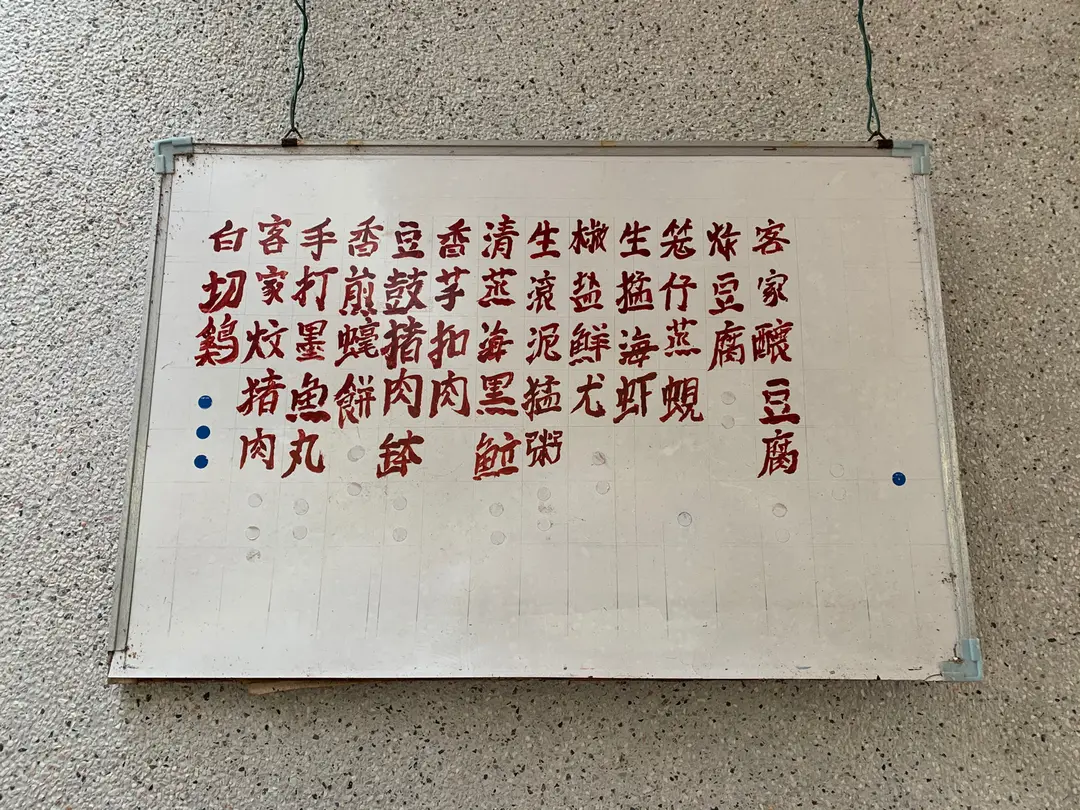 客家釀豆腐
炸豆腐
笼仔蒸蜆
生猛海虾
椒盐鮮尤
生滚泥猛粥
清蒸海黑
香芋扣肉
豆鼓猪肉缽
香煎蠔餅
手打墨魚丸
客家炆猪肉
白切鷄